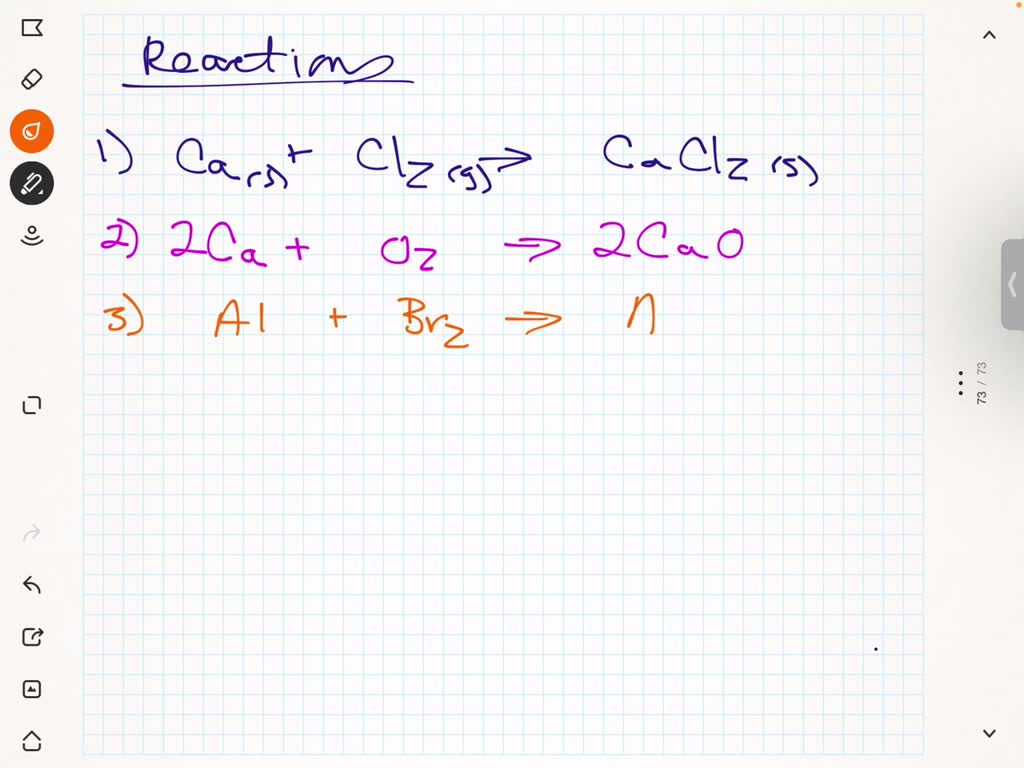 Reactions
1) Ca(s) + Cl2(g) → CaCl2(s)
2) 2Ca + O2 → 2CaO
3) Al + Br2 →
73 / 73